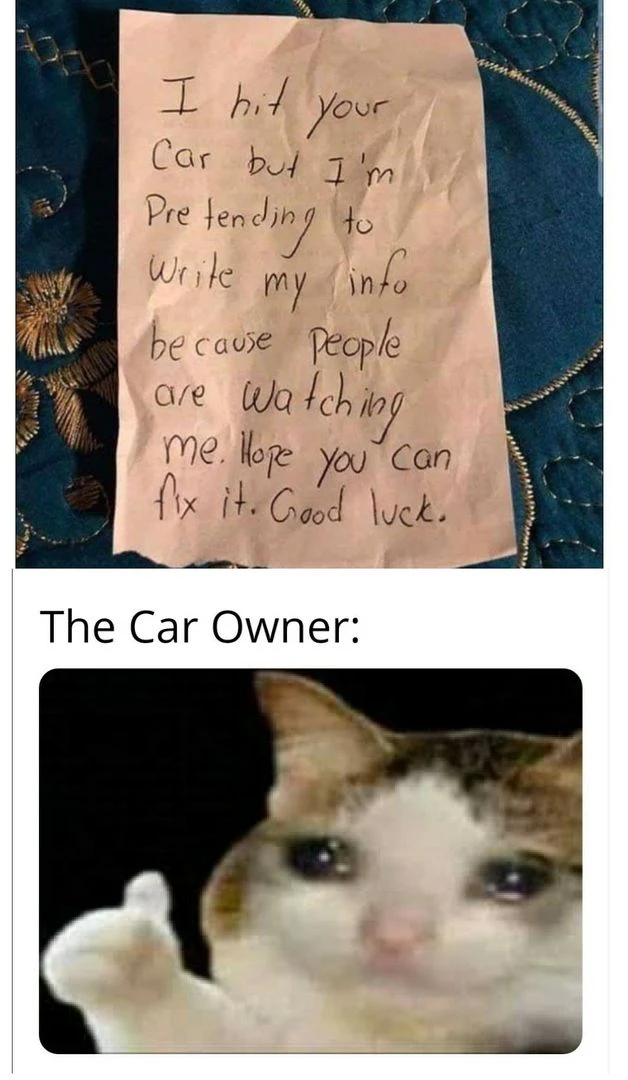 I hit your
Car but I'm
Pretending to
Write my info
because people
are watching
me. Hope you can
fix it. Good luck.
The Car Owner: